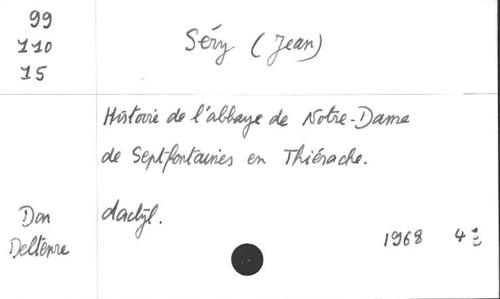 99
110
15
Séry (Jean)
Histoire de l'abbaye de Notre-Dame
de Septfontaines en Thiérache.
dactyl.
Don
Deltenre
1968 4º